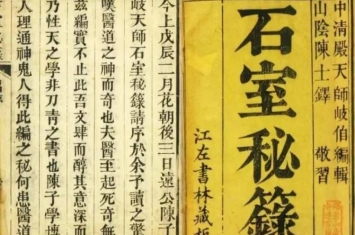 中清殿天師岐伯編輯
山陰陳士鐸 敬習
石室秘籙
江左書林藏板
今上戊辰二月花朝後三日遠公陳子
岐天師石室秘錄請序於余予讀之驚
嘆醫道之神而奇也夫醫至起死奇無
兹編實不止此吾文肆而醇其意深而
乃性天之學非刀青之書也陳子學博
人理通神鬼人得此編之秘何患醫道